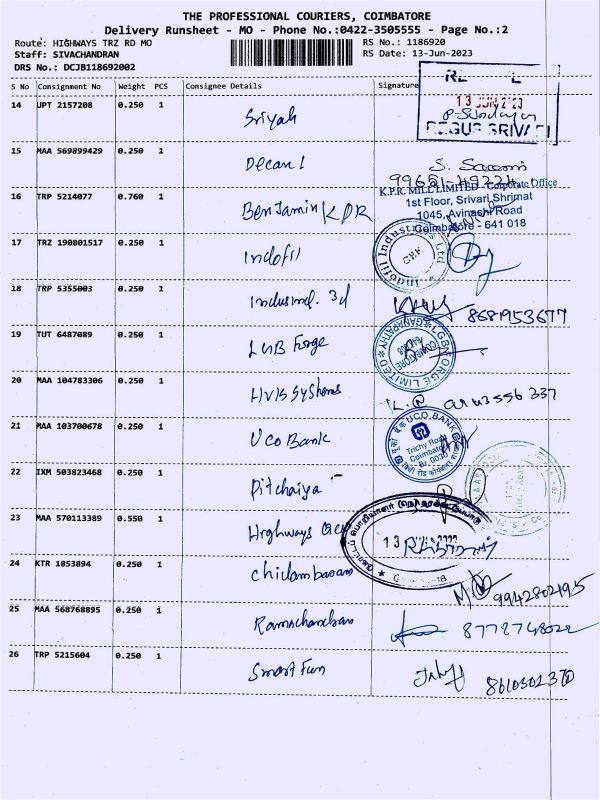 THE PROFESSIONAL COURIERS, COIMBATORE
Delivery Runsheet - MO - Phone No.:0422-3505555 - Page No.:2
Route: HIGHWAYS TRZ RD MO RS No.: 1186920
Staff: SIVACHANDRAN RS Date: 13-Jun-2023
DRS No.: DCJB118692002
S No Consignment No Weight PCS Consignee Details Signature
14 UPT 2157208 0.250 1 Sriyah
13 JUN
REGUS SRIVARI
15 MAA 569899429 0.250 1 Decan 1
K.P.R. MILL LIMITED Corporate Office
16 TRP 5214077 0.760 1 Benjamin KPR
1st Floor, Srivari Shrimat
1045, Avinashi Road
Coimbatore - 641 018
17 TRZ 190801517 0.250 1 Indofil
Indofil Industries Ltd
18 TRP 5355003 0.250 1 Indusind. 3d
8681953677
19 TUT 6487089 0.250 1 LGB Forge
LGB FORGE LIMITED
20 MAA 104783306 0.250 1 HVB Systems
21 MAA 103700678 0.250 1 UCO Bank
UCO BANK
Trichy Road
Coimbatore
22 IXM 503823468 0.250 1 Pitchaiya
23 MAA 570113389 0.550 1 Highways
13
24 KTR 1853894 0.250 1 Chidambaram
9942802195
25 MAA 568768895 0.250 1 Ramachandran
8772748022
26 TRP 5215604 0.250 1 Smart Fun